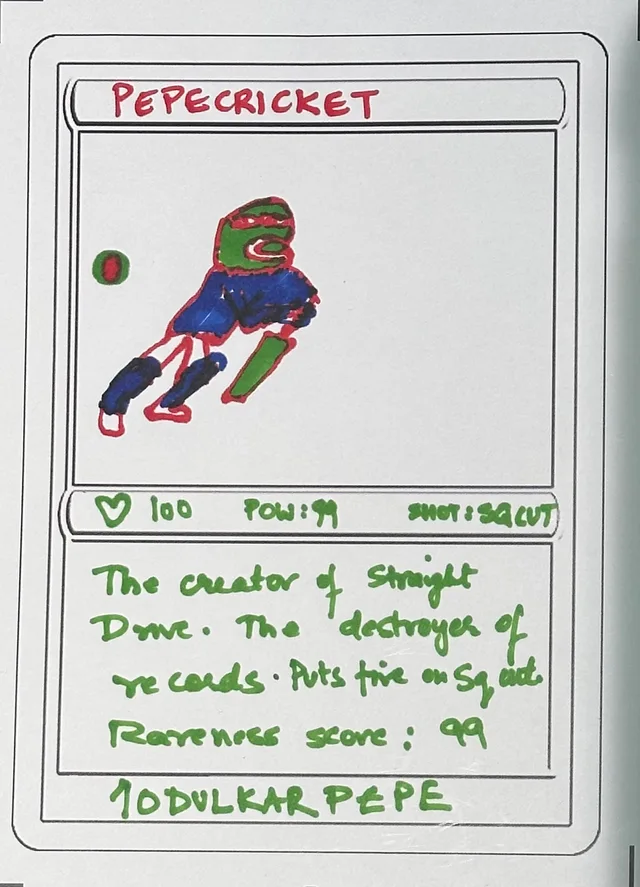 PEPECRICKET
♡ 100 POW: 99 SHOT: SQ CUT
The creator of Straight
Drive. The destroyer of
records. Puts fire on Sq cut.
Rareness score: 99
10DULKAR PEPE